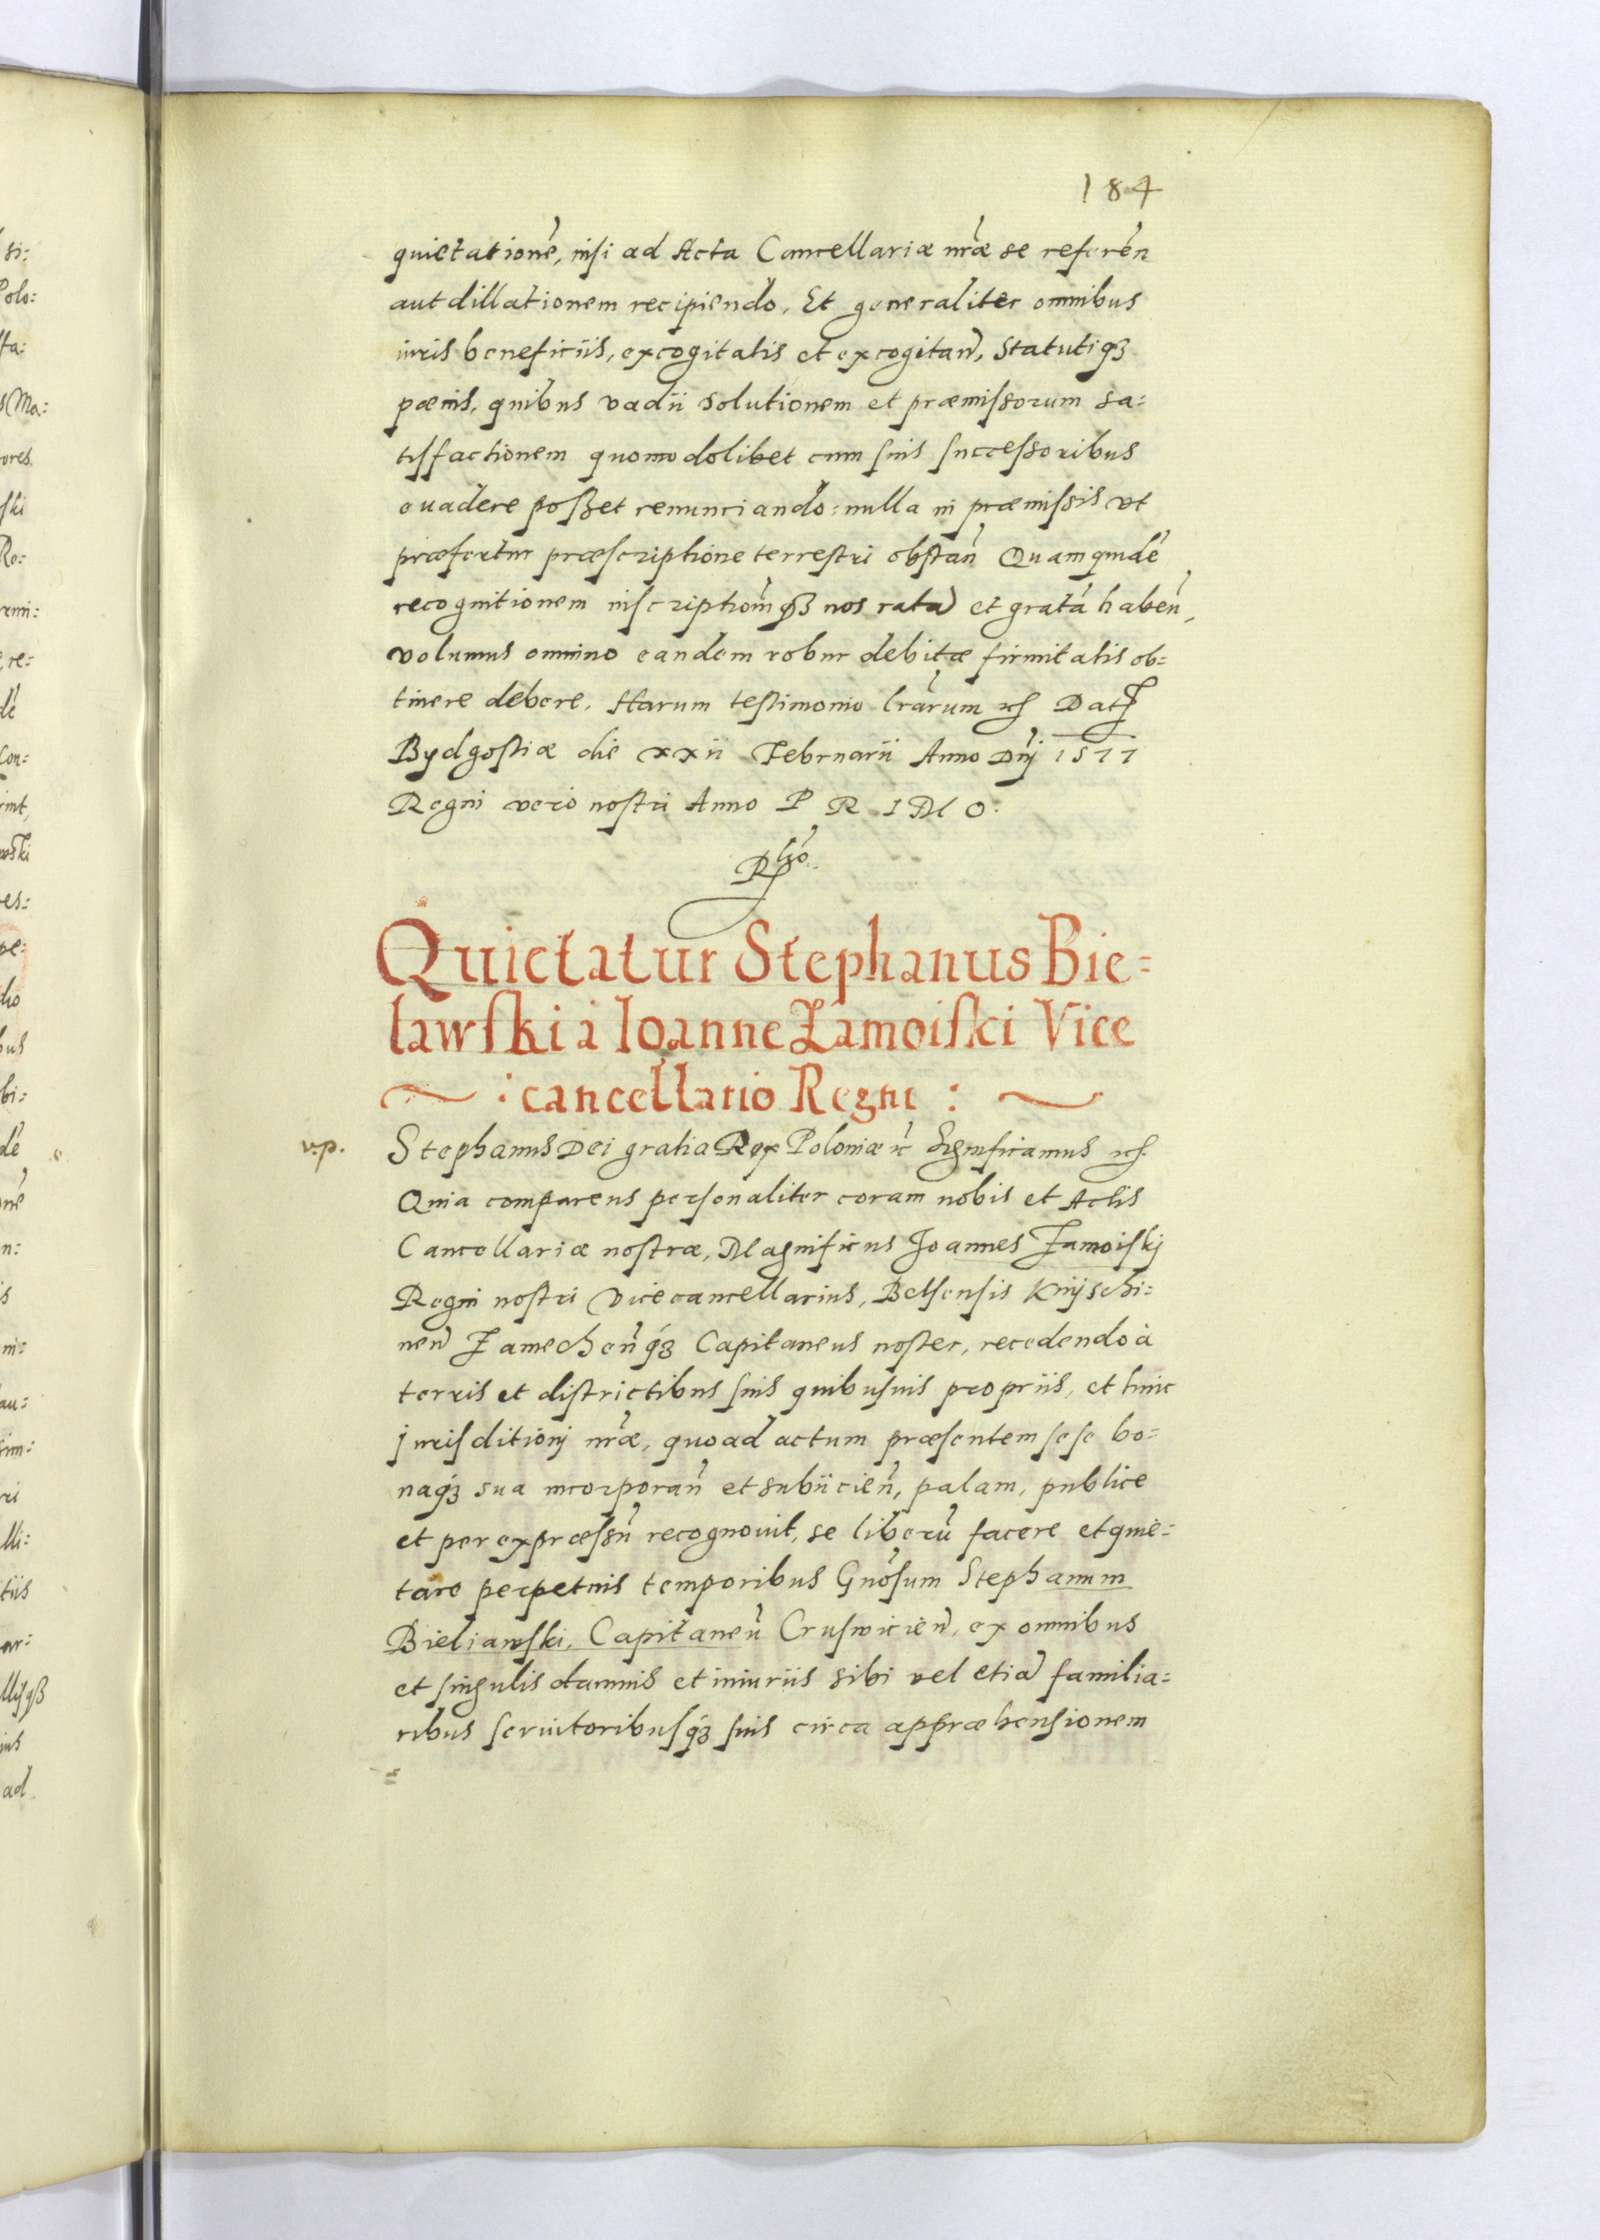 184
quietationē, nisi ad Acta Cancellariæ nrāe se referēn
aut dillationem recipiendo, Et generaliter omnibus
iuris beneficiis, excogitatis et excogitan̄, statutiqȝ
pœnis, quibus vadii solutionem et præmissorum sa=
tisfactionem quomodolibet cum suis successoribus
euadere posset renunciando: nulla in præmissis vt
præfertur præscriptione terrestri obstan̄ Quamquidē
recognitionem inscriptiom̄qȝ nos ratā et gratā haben̄,
volumus omnino eandem robur debitæ firmitatis ob=
tinere debere. Harum testimonio lrārum etc Dat
Bydgostiæ die xxii Februarii Anno Dnj 1577
Regni vero nostri Anno PRIMO:
Quietatur Stephanus Bie=
lawski à Ioanne Zamoiski Vice
: cancellario Regni :
v.p.
Stephanus Dei gratia Rex Poloniæ etc Significamus etc
Quia comparens personaliter coram nobis et Actis
Cancellariæ nostræ, Magnificus Joannes Zamoiskj
Regni nostri Vicecancellarius, Belsensis Knijschi=
nen̄ Zamechen̄qȝ Capitaneus noster, recedendo à
terris et districtibus suis quibusuis propriis, et huic
jurisditionj nrāe, quoad actum præsentem sese bo=
naqȝ sua incorporan̄ et subiicien̄, palam, publice
et per expræssū recognouit, se liberū facere et quie=
tare perpetuis temporibus Gnōsum Stephanum
Bieliawski, Capitaneū Cruswicien̄, ex omnibus
et singulis damnis et iniuriis sibi vel etiā familia=
ribus seruitoribusqȝ suis circa appræhensionem